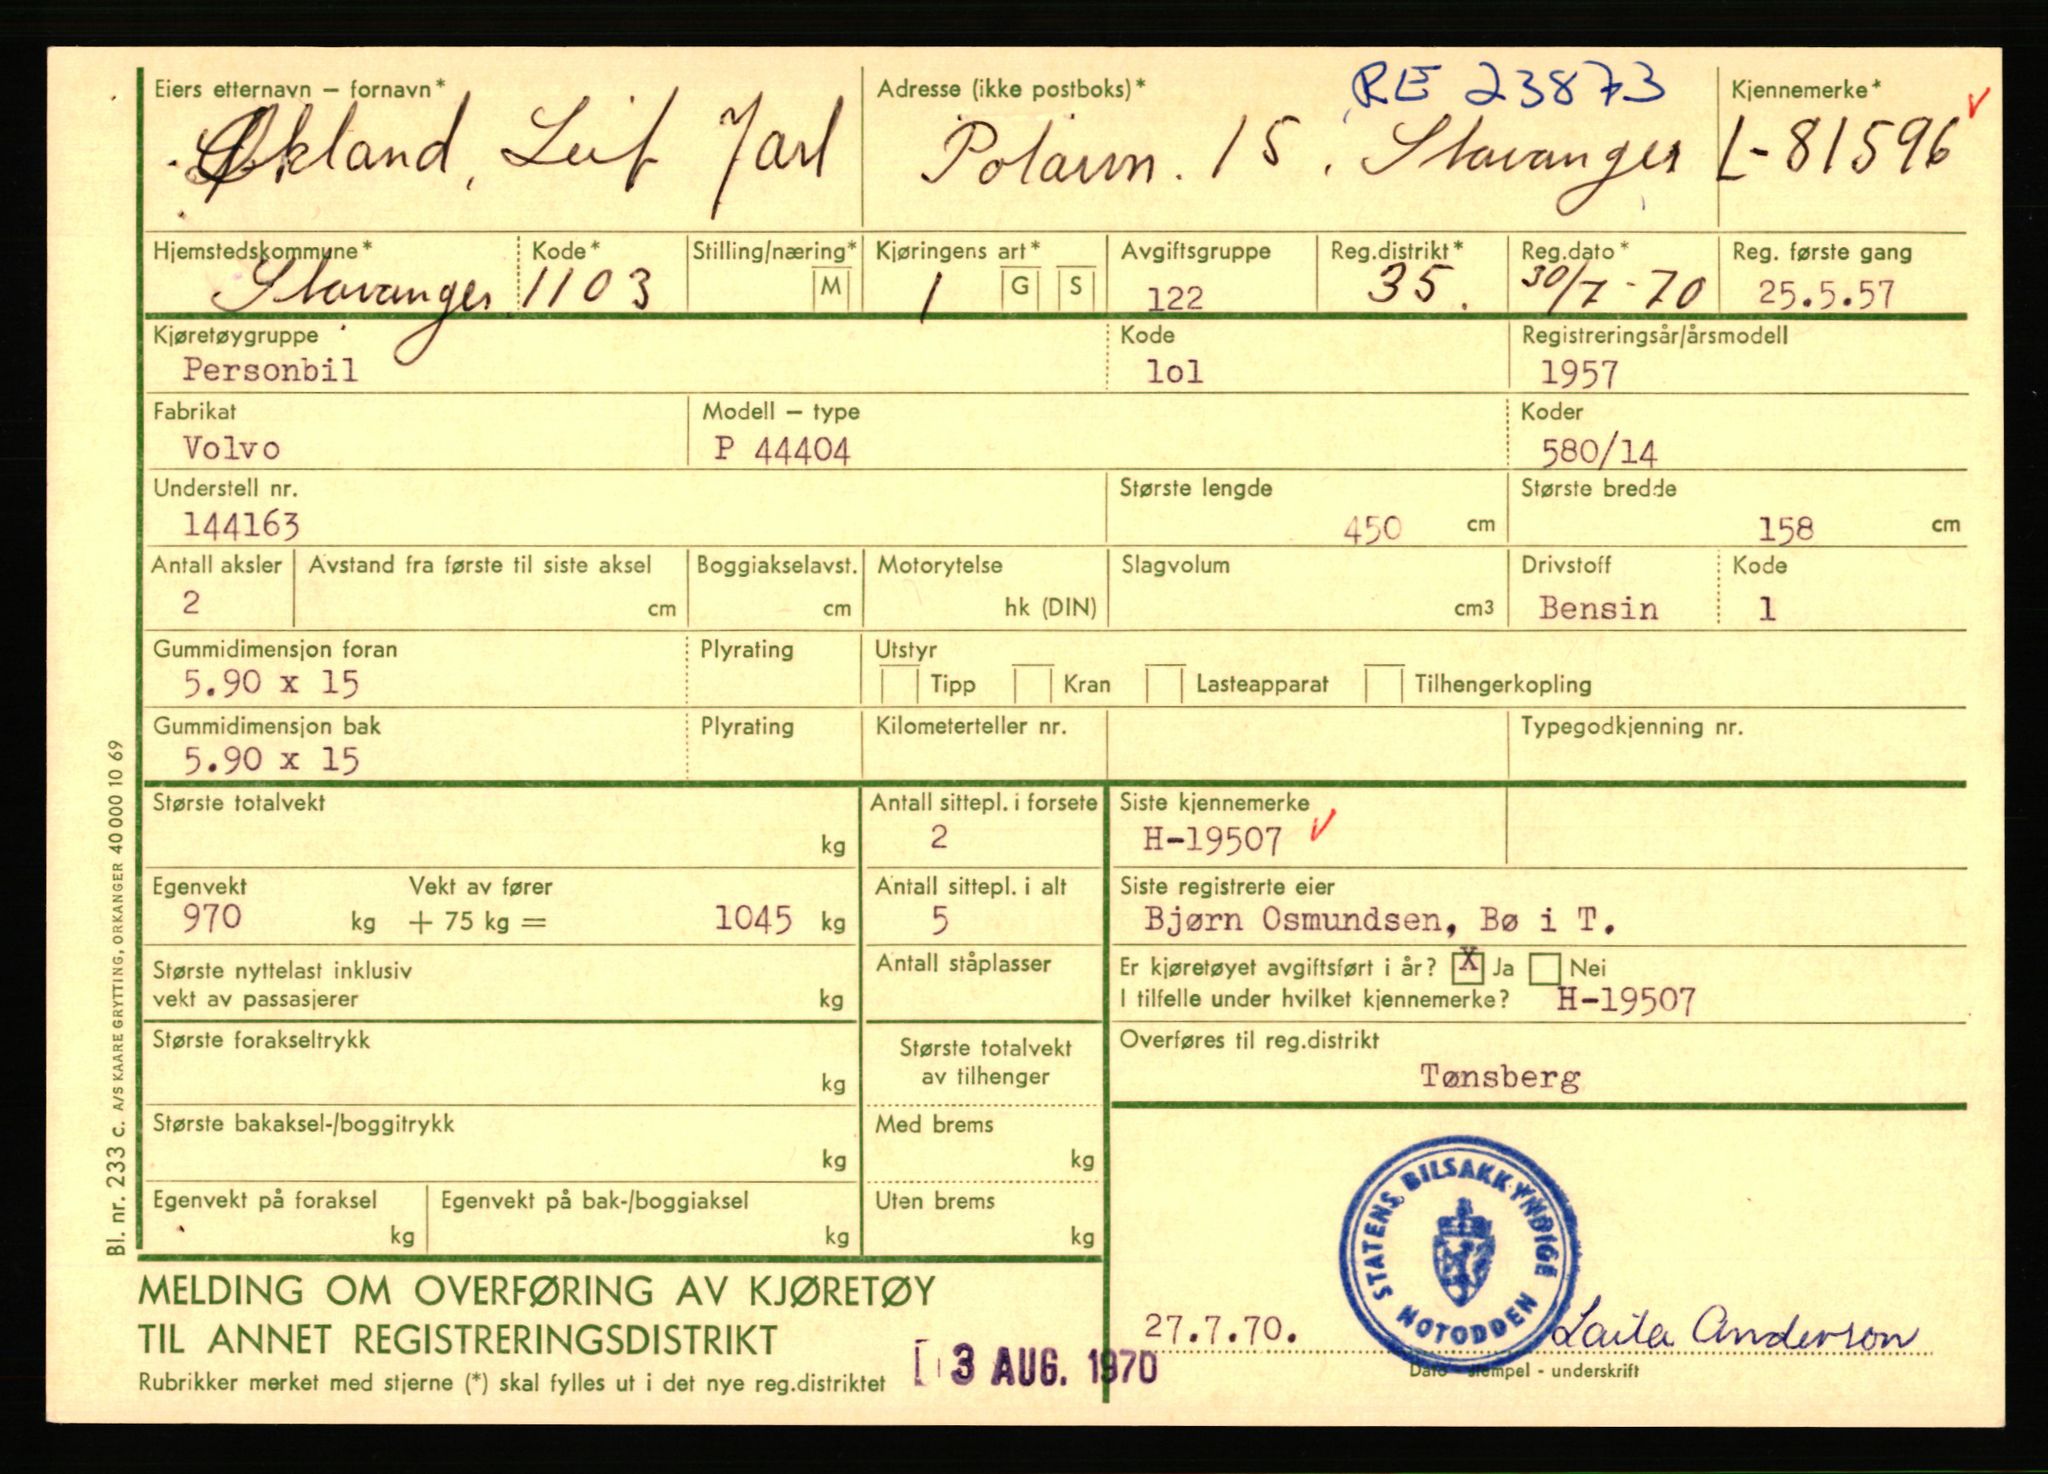 Eiers etternavn – fornavn*
Adresse (ikke postboks)*
RE 23873
Kjennemerke*
Økland, Leif Jarl
Polarvn. 15, Stavanger
L-81596
Hjemstedskommune*
Kode*
Stilling/næring*
Kjøringens art*
Avgiftsgruppe
Reg.distrikt*
Reg.dato*
Reg. første gang
Stavanger
1103
M
1
G
S
122
35.
30/7-70
25.5.57
Kjøretøygruppe
Kode
Registreringsår/årsmodell
Personbil
lol
1957
Fabrikat
Modell – type
Koder
Volvo
P 44404
580/14
Understell nr.
Største lengde
Største bredde
144163
450 cm
158 cm
Antall aksler
Avstand fra første til siste aksel
Boggiakselavst.
Motorytelse
Slagvolum
Drivstoff
Kode
2
cm
cm
hk (DIN)
cm3
Bensin
1
Gummidimensjon foran
Plyrating
Utstyr
5.90 x 15
Tipp
Kran
Lasteapparat
Tilhengerkopling
Gummidimensjon bak
Plyrating
Kilometerteller nr.
Typegodkjenning nr.
5.90 x 15
Største totalvekt
kg
Antall sittepl. i forsete
2
Siste kjennemerke
H-19507
Egenvekt
Vekt av fører
970 kg + 75 kg = 1045 kg
Antall sittepl. i alt
5
Siste registrerte eier
Bjørn Osmundsen, Bø i T.
Største nyttelast inklusiv
vekt av passasjerer
kg
Antall ståplasser
Er kjøretøyet avgiftsført i år? X Ja Nei
I tilfelle under hvilket kjennemerke? H-19507
Største forakseltrykk
kg
Største totalvekt
av tilhenger
Overføres til reg.distrikt
Tønsberg
Største bakaksel-/boggitrykk
kg
Med brems
kg
Egenvekt på foraksel
kg
Egenvekt på bak-/boggiaksel
kg
Uten brems
kg
STATENS BILSAKKYNDIGE
NOTODDEN
MELDING OM OVERFØRING AV KJØRETØY
TIL ANNET REGISTRERINGSDISTRIKT
Rubrikker merket med stjerne (*) skal fylles ut i det nye reg.distriktet
3 AUG. 1970
27.7.70.
Laila Anderson
Dato - stempel - underskrift
Bl. nr. 233 c. A/S KAARE GRYTTING, ORKANGER 40 000 10 69